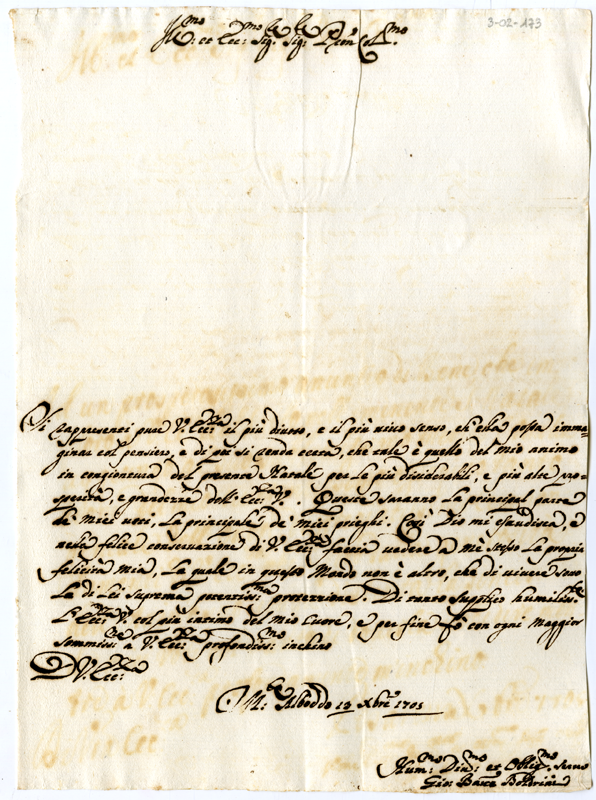 3-02-173
Ill.mo et Ecc.mo Sig.r Sig.r P.ron Col.mo
Si rapresenti pure V. Ecc.za il più divoto, e il più vivo senso, ch'ella possa imma=
ginar col pensiero, e di poi si renda certa, che tale è quello del mio animo
in congiontura del presente Natale per le più disiderabili, e più alte pro=
sperità, e grandezze dell'Ecc.za V. Queste saranno la principal parte
de' miei voti, la principale de' miei prieghi. Così Dio mi esaudisca, e
nella felice conservazione di V. Ecc.za faccia vedere a mè stesso la propria
felicità mia, la quale in questo Mondo non è altro, che di vivere sotto
la di Lei suprema potentiss.ma protezzione. Di tanto supplico humiliss.te
l'Ecc.za V. col più intimo del mio Cuore, e per fine fò con ogni maggior
sommiss.ne a V. Ecc.za profondiss.mo inchino
D V. Ecc.za
13 Xbre 1703
Hum.mo Div.mo et Oblig.mo Servo
Gio: Batt.a